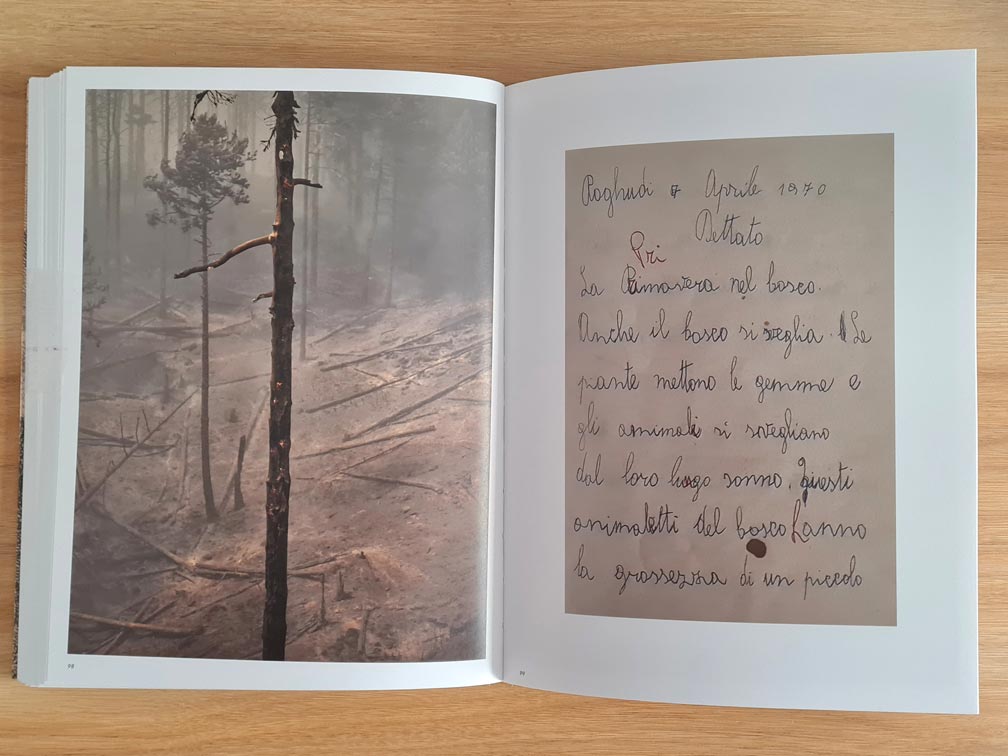 98
Roghudi 7 Aprile 1970
Dettato
Pri
La Rimavera nel bosco.
Anche il bosco si sveglia. Le
piante mettono le gemme e
gli animali si svegliano
dal loro lugo sonno. Questi
animaletti del bosco hanno
la grassezza di un piccolo
99